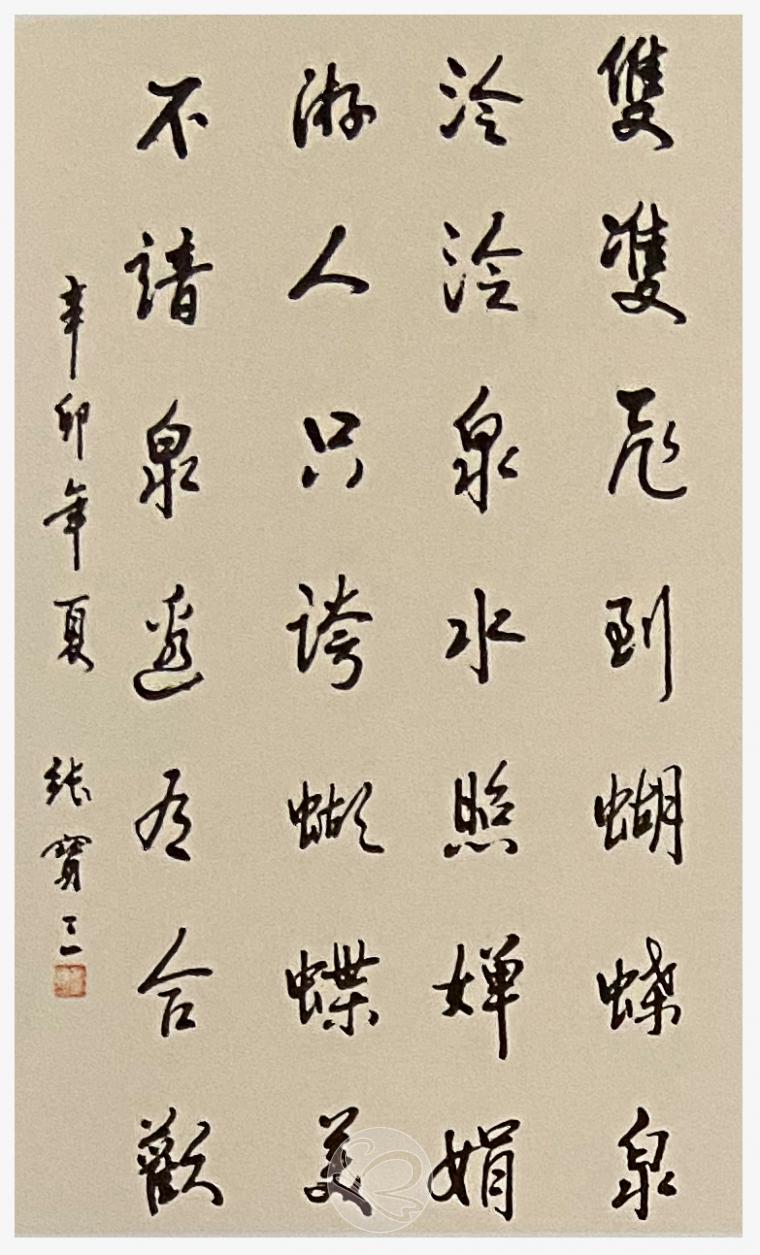 雙雙飛到蝴蝶泉
泠泠泉水照嬋娟
游人只誇蝴蝶美
不諳泉邊有合歡
辛卯年夏 張寶三